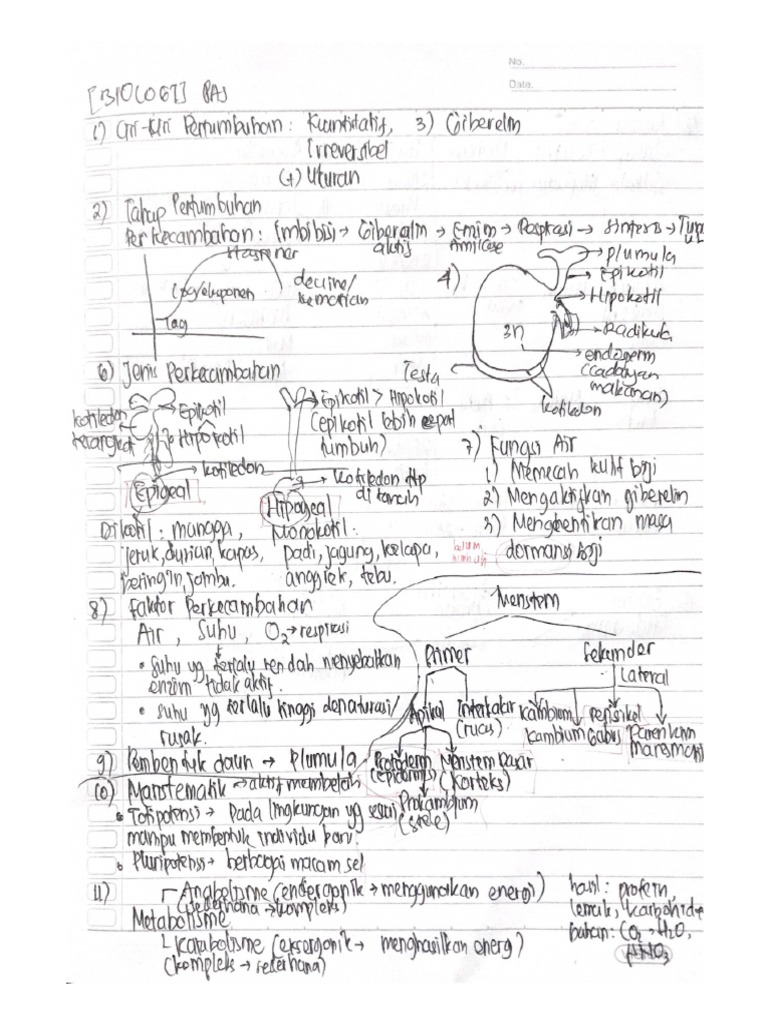 No.
Date.
[BIOLOGI] PAS
1) Ciri-Ciri Pertumbuhan : Kuantitatif, 3) Giberelin
Irreversibel
(+) Ukuran
2) Tahap Pertumbuhan
Perkecambahan : Imbibisi → Giberelin → Enzim → Respirasi → Sintesis →
aktif Amilase
Stasioner
Log/eksponen
decline/
kematian
Lag
4)
→ plumula
→ Epikotil
→ Hipokotil
→ Radikula
3n
→ endosperm
(cadangan
makanan)
kotiledon
Testa
6) Jenis Perkecambahan
kotiledon
terangkat
→ Epikotil
→ Hipokotil
→ kotiledon
Epigeal
→ Epikotil > Hipokotil
(epikotil lebih cepat
tumbuh)
→ kotiledon ttp
di tanah
Hipogeal
Dikotil : mangga,
jeruk, durian, kapas,
beringin, jambu.
Monokotil :
padi, jagung, kelapa,
anggrek, tebu.
7) Fungsi Air
1) Memecah kulit biji
2) Mengaktifkan giberelin
3) Menghentikan masa
dormansi biji
belum
8) Faktor Perkecambahan
Air, Suhu, O2 → respirasi
• suhu yg terlalu rendah menyebabkan
enzim tidak aktif.
• suhu yg terlalu tinggi denaturasi/
rusak.
Meristem
Primer
Sekunder
Lateral
Apikal
Interkalar
(ruas)
Kambium
kambium
Perisikel
Gabus
Parenkim
Protoderm
(epidermis)
Meristem Dasar
(korteks)
Prokambium
(stele)
9) Pembentuk daun → Plumula
10) Maristematik → aktif membelah
• Totipotensi → Pada lingkungan yg sesuai
mampu membentuk individu baru.
• Pluripotensi → berbagai macam sel
11) Anabolisme (endergonik → menggunakan energi)
(sederhana → kompleks)
Metabolisme
Katabolisme (eksorganik → menghasilkan energ)
(kompleks → sederhana)
hasil : protein,
lemak, karbohidr
bahan : CO2 + H2O,
HNO3